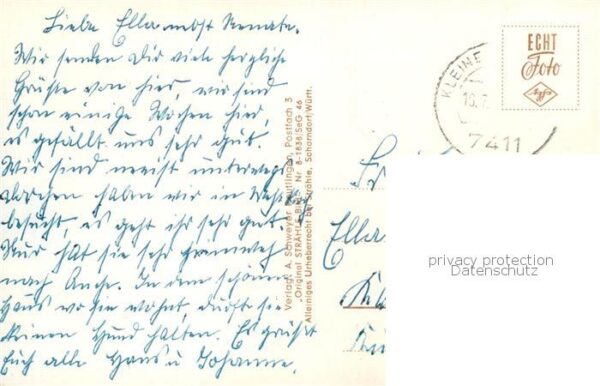 Liebe Ella nebst Renate.
Wir senden Dir viele herzliche
Grüße von hier, wir sind
schon einige Wochen hier,
es gefällt uns sehr gut.
Wir sind meist unterwegs
haben wir in
besucht, es geht ihr sehr gut.
Nur hat sie sehr Heimweh
nach In dem schönen
Haus wo sie wohnt, durfte sie
keinen Hund halten. Es grüßt
Euch alle Hans u Johanne.
Verlag: A. Schweyer Reutlingen, Postfach 3
"Original STRÄHLE-BILD" Nr. 8-1838/SeG 46
Alleiniges Urheberrecht bei Strähle, Schorndorf/Württ.
ECHT
Foto
Agfa
KLEINE
7411
Ella
privacy protection
Datenschutz